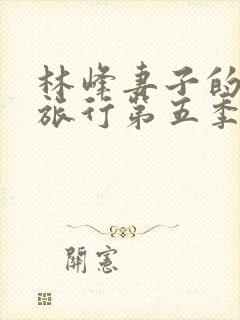 林峰妻子的
旅行第五季
開憲